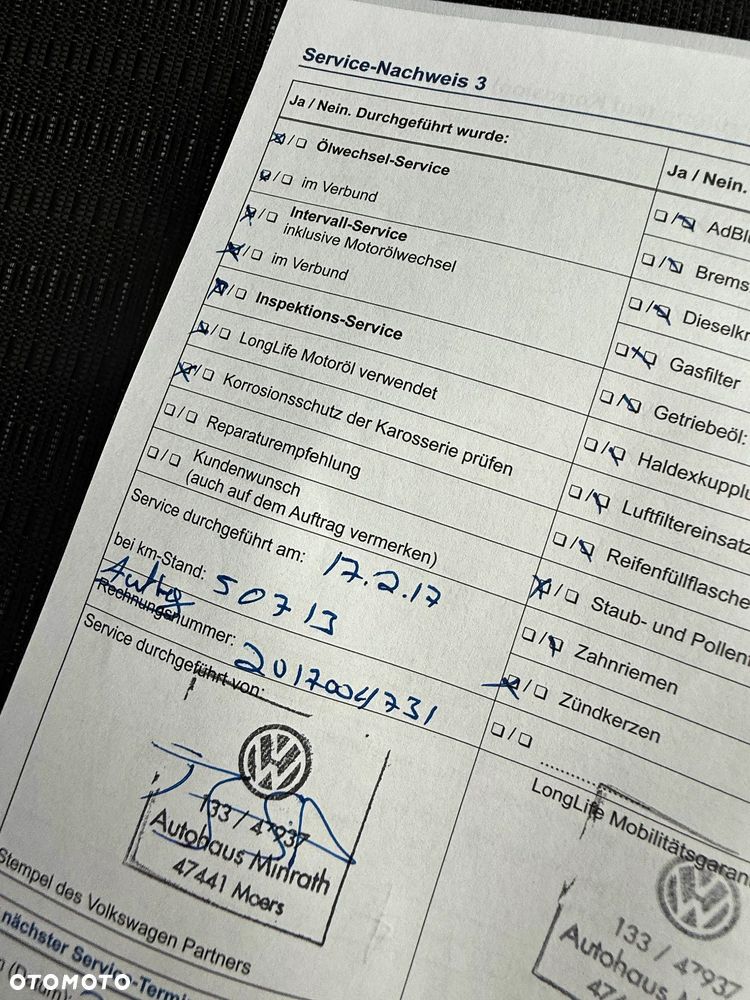 Service-Nachweis 3
Ja / Nein. Durchgeführt wurde:
Ölwechsel-Service
im Verbund
Intervall-Service
inklusive Motorölwechsel
im Verbund
Inspektions-Service
LongLife Motoröl verwendet
Korrosionsschutz der Karosserie prüfen
Reparaturempfehlung
Kundenwunsch
(auch auf dem Auftrag vermerken)
Service durchgeführt am: 17.2.17
bei km-Stand: 50713
Auftrag
Rechnungsnummer: 2017004731
Service durchgeführt von:
133 / 47937
Autohaus Minrath
47441 Moers
Stempel des Volkswagen Partners
nächster Service-Termi
Ja / Nein.
AdBlu
Brems
Dieselkr
Gasfilter
Getriebeöl:
Haldexkupplu
Luftfiltereinsatz
Reifenfüllflasche
Staub- und Pollenf
Zahnriemen
Zündkerzen
LongLife Mobilitätsgaran
133 / 47937
Autohaus
47
OTOMOTO